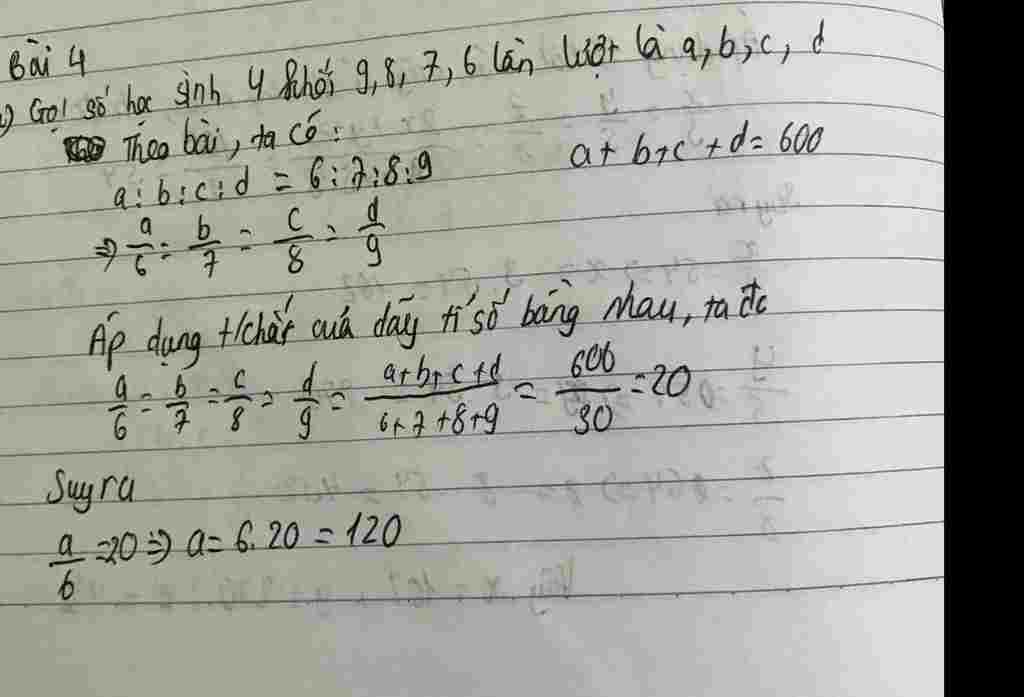 Bài 4
a) Gọi số học sinh 4 khối 9, 8, 7, 6 lần lượt là a, b, c, d
Theo bài, ta có:
a : b : c : d = 6 : 7 : 8 : 9 a + b + c + d = 600
⇒ a/6 = b/7 = c/8 = d/9
Áp dụng t/chất cuả dãy tỉ số bằng nhau, ta đc
a/6 = b/7 = c/8 = d/9 = (a+b+c+d)/(6+7+8+9) = 600/30 = 20
Suy ra
a/6 = 20 ⇒ a = 6. 20 = 120